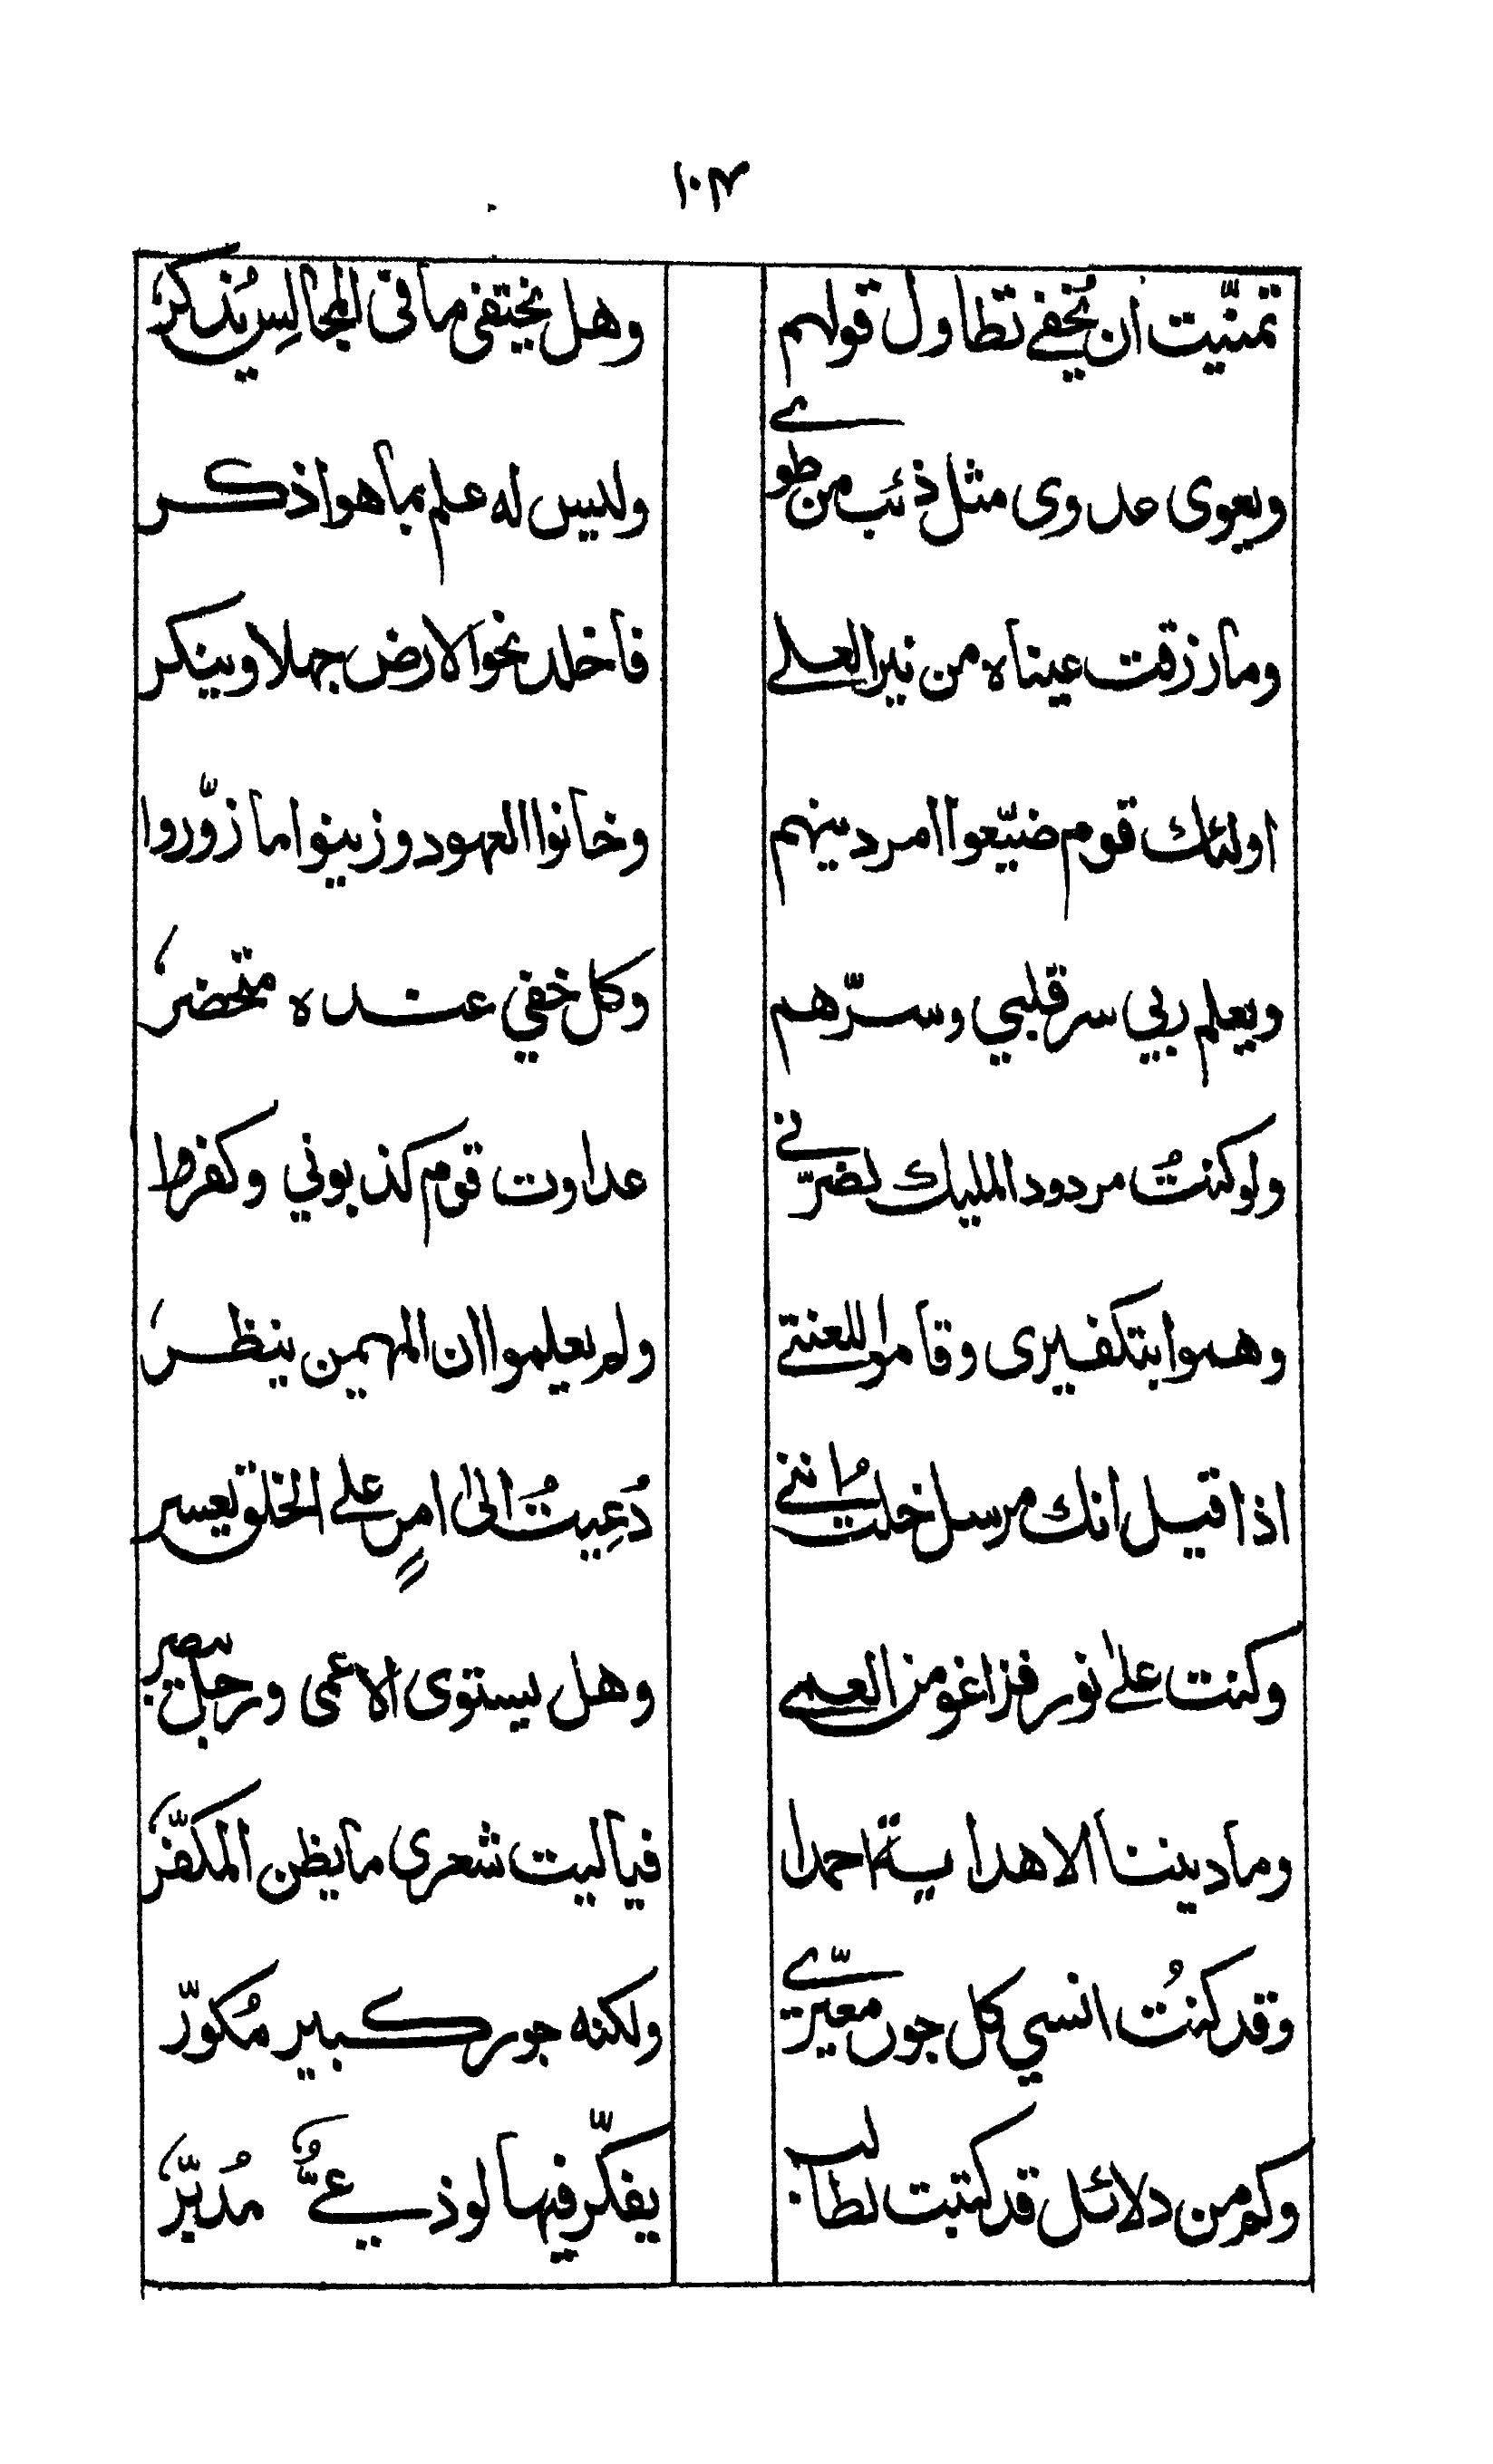 ١٠٤
تمنّيت ان يُخفى تطاول قولهم وهل يختفى ما فى المجالِس يُذكرُ
ويعوى عدوى مثل ذئب من طوى وليس له علم بما هو اذكر
وما رزقت عيناه من نير العلى فاخلد نحو الارض جهلا وينكر
اولئك قوم ضيّعوا امر دينهم وخانوا العهود وزينوا ما زوّروا
ويعلم ربي سر قلبي وسرّهم وكل خفي عنده متحضرُ
ولو كنتُ مردود المليك لضرّني عداوت قوم كذبوني وكفروا
وهموا بتكفيرى وقاموا للعنتي ولم يعلموا ان المهيمن ينظرُ
اذا قيل انك مرسل خلتُ انني دُعِيتُ الىٰ امرٍ على الخلق يعسر
وكنت علىٰ نور فزاغو من العمى وهل يستوى الاعمى ورجل يبصر
وما ديننا الا هداية احمدا فيا ليت شعرى ما يظن المكفّرُ
وقد كنتُ انسي كل جور معيّرى ولكنه جور كبير مُكوّر
وكم من دلائل قد كتبت لطالب يفكّر فيها لوذعيٌّ مُدبّرُ